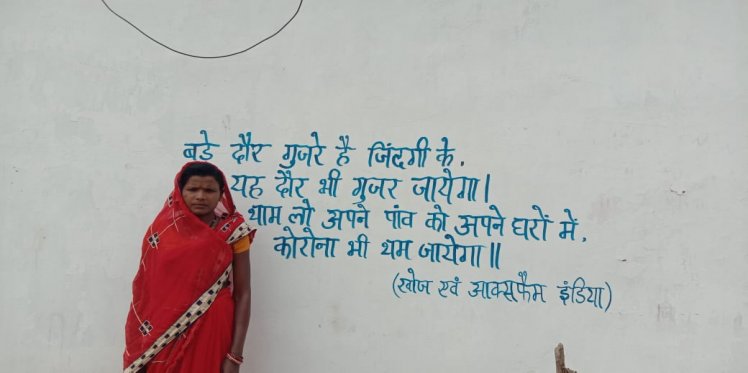 बडे दौर गुजरे है जिंदगी के,
यह दौर भी गुजर जायेगा।
थाम लो अपने पांव को अपने घरों में,
कोरोना भी थम जायेगा॥
(खोज एवं आक्सफैम इंडिया)